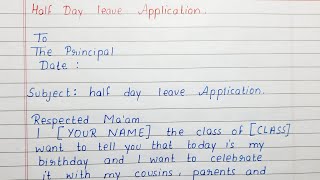 Half Day leave Application.
To
The Principal
Date :
Subject: half day leave Application.
Respected Ma'am
I [YOUR NAME] the class of [CLASS]
want to tell you that today is my
birthday and I want to celebrate
it with my cousins, parents and